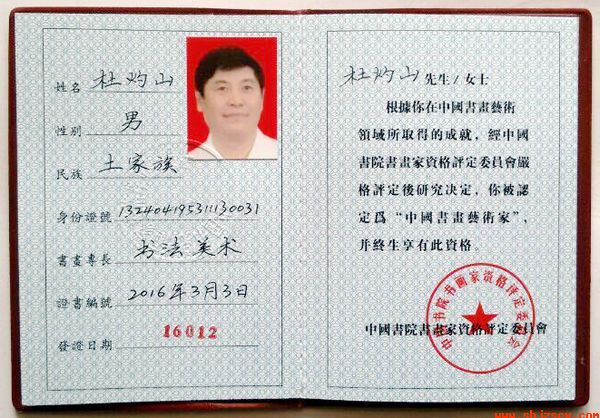 姓名 杜灼山
性别 男
民族 土家族
身份證號 132404195311130031
書畫專長 书法美术
證書編號 2016年3月3日
發證日期 16012
杜灼山 先生/女士
根據你在中國書畫藝術
領域所取得的成就，經中國
書院書畫家資格評定委員會嚴
格評定後研究决定，你被認
定爲“中國書畫藝術家”，
并終生享有此資格。
中国书院书画家资格评定委员会
中國書院書畫家資格評定委員會